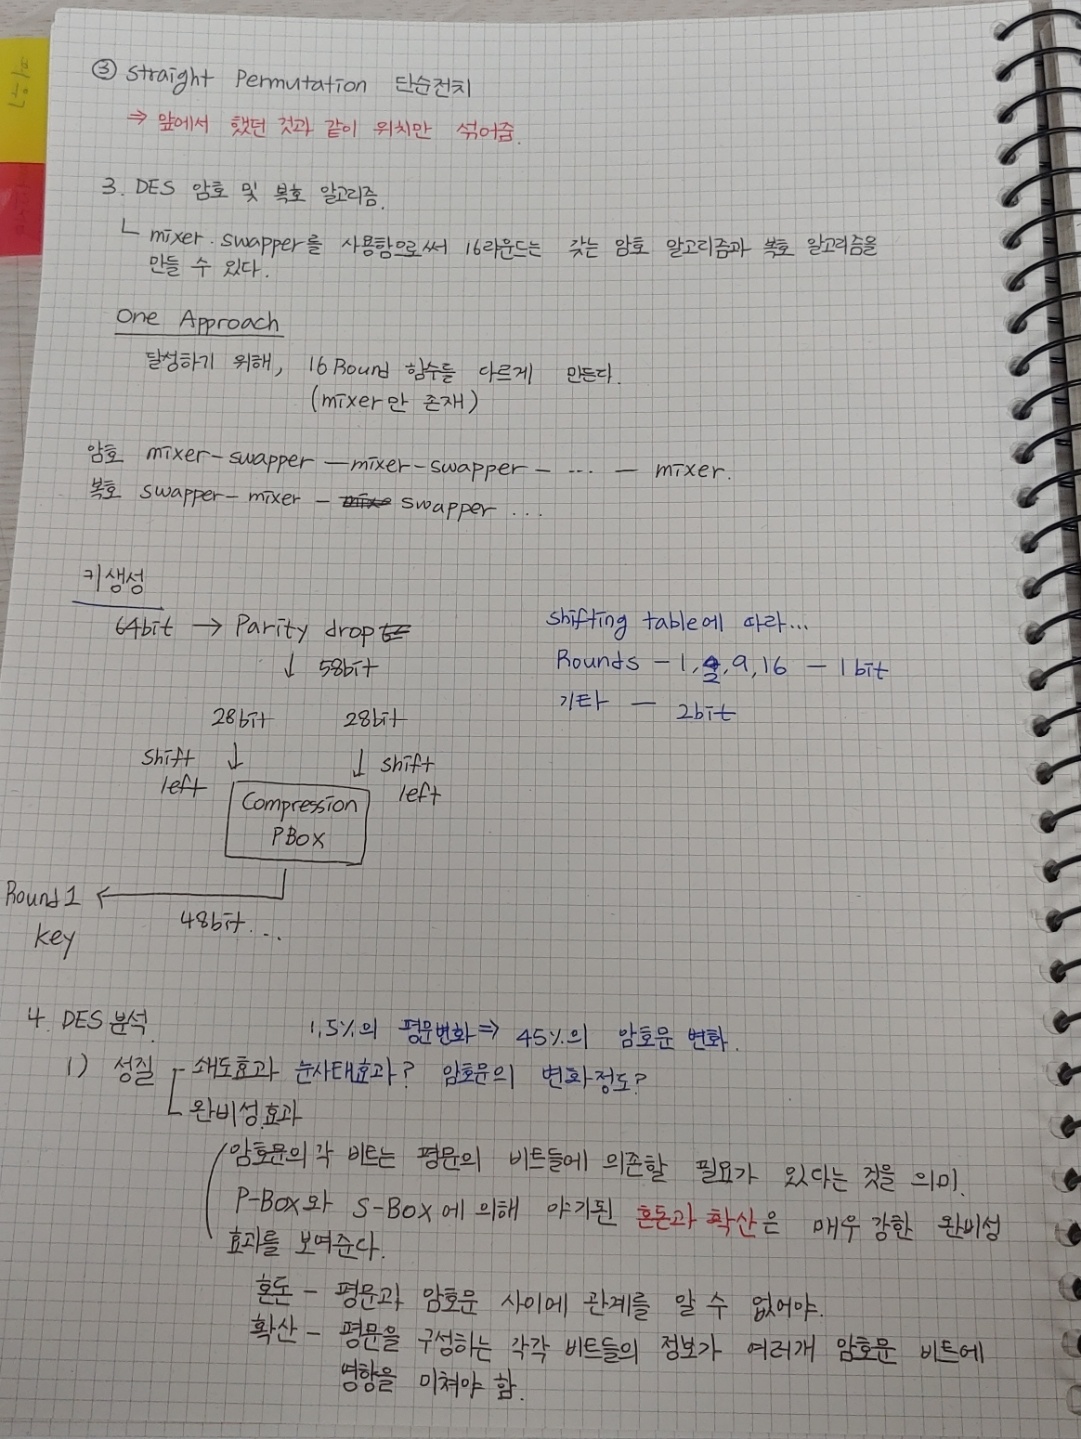 ③ Straight Permutation 단순전치
⇒ 앞에서 했던 것과 같이 위치만 섞어줌.
3. DES 암호 및 복호 알고리즘.
└ mixer. swapper를 사용함으로써 16라운드는 갖는 암호 알고리즘과 복호 알고리즘을
만들 수 있다.
One Approach
달성하기 위해, 16 Round 함수들 다르게 만든다.
(mixer만 존재)
암호 mixer-swapper-mixer-swapper- ... - mixer.
복호 swapper- mixer - swapper ...
키생성
64bit → Parity drop
↓ 58bit
28bit 28bit
shift left ↓ ↓ shift left
Compression
PBox
Round 1 key ←
48bit...
Shifting table에 따라...
Rounds - 1,2,9,16 - 1bit
기타 - 2bit
4. DES 분석.
1,5%의 평문변화 ⇒ 45%의 암호문 변화.
1) 성질 - 쇄도효과 눈사태효과? 암호문의 변화정도?
└ 완비성효과
암호문의 각 비트는 평문의 비트들에 의존할 필요가 있다는 것을 의미.
P-Box와 S-Box에 의해 야기된 혼돈과 확산은 매우 강한 완비성
효과를 보여준다.
혼돈 - 평문과 암호문 사이에 관계를 알 수 없어야.
확산 - 평문을 구성하는 각각 비트들의 정보가 여러개 암호문 비트에
영향을 미쳐야 함.